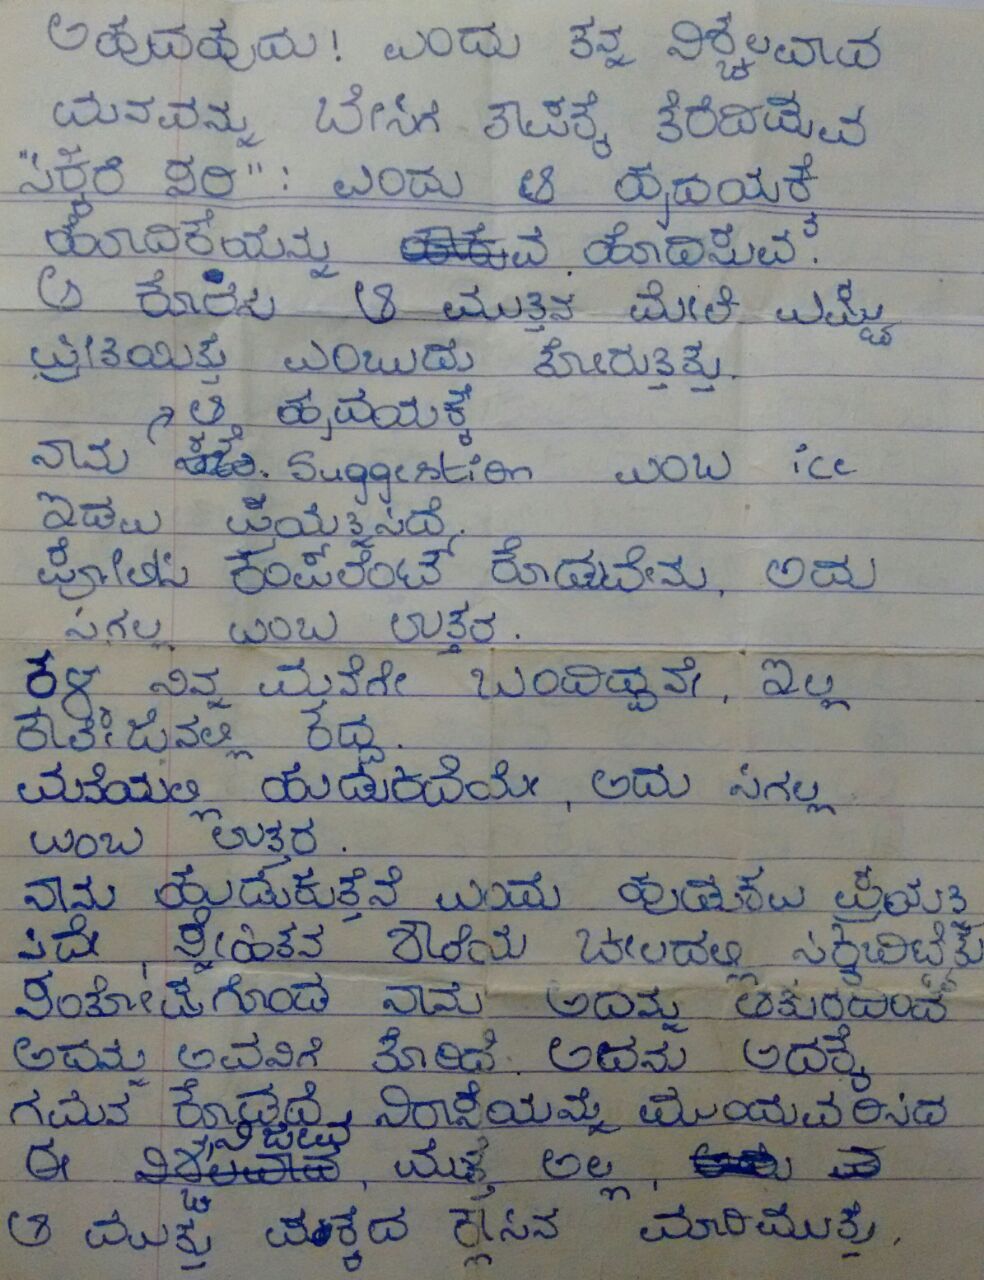 ಅಹುದಹುದು! ಎಂದು ತನ್ನ ನಿಶ್ಚಲವಾದ
ಮನವನ್ನು ಬೇಸಿಗೆ ತಾಪಕ್ಕೆ ತೆರೆದಿಡುವ
"ಸಕ್ಕರೆ ಸಿರಿ": ಎಂದು ಆ ಹೃದಯಕ್ಕೆ
ಹೊದಿಕೆಯನ್ನು ಹೊದಿಸುವ.
ಆ ಕೊರೆಸು ಆ ಮುತ್ತಿನ ಮೇಲೆ ಎಷ್ಟು
ಪ್ರೀತಿಯಿತ್ತು ಎಂಬುದು ತೋರುತ್ತಿತ್ತು.
ಆ ಹೃದಯಕ್ಕೆ
ನಾನು Suggestion ಎಂಬ ice
ಇಡಲು ಪ್ರಯತ್ನಿಸಿದೆ.
ಪೋಲೀಸ ಕಂಪ್ಲೆಂಟ್ ಕೊಡುವೇನು, ಅದು
ಸಿಗಲ್ಲ ಎಂಬ ಉತ್ತರ.
ಕಳ್ಳ ನಿನ್ನ ಮನೆಗೇ ಬಂದಿದ್ದನೇ, ಇಲ್ಲ
ಕಾಲೇಜಿನಲ್ಲಿ ಕದ್ದ.
ಮನೆಯಲ್ಲಿ ಹುಡುಕಿದೆಯೇ, ಅದು ಸಿಗಲ್ಲ
ಎಂಬ ಉತ್ತರ.
ನಾನು ಹುಡುಕುತ್ತೆನೆ ಎಂದು ಹುಡುಕಲು ಪ್ರಯತ್ನಿ
ಸಿದೇ, ಸ್ನೇಹಿತನ ಶಾಲೆಯ ಚೀಲದಲ್ಲಿ ಸಿಕ್ಕಿಬಿಟ್ಟಿತು
ಸಂತೋಷಗೊಂಡ ನಾನು ಅದನ್ನು ಆತುರದಿಂದ
ಅದನ್ನು ಅವನಿಗೆ ತೋರಿದೆ. ಅವನು ಅದಕ್ಕೆ
ಗಮನ ಕೊಡದೆ ನಿರಾಸೆಯನ್ನೆ ಮುಂದುವರಿಸಿದ
ಈ ನಿಜಲು, ಮತ್ತೆ ಅಲ್ಲ,
ಆ ಮುತ್ತು ಪಕ್ಕದ ಕ್ಲಾಸಿನ ಮಾರಿಮುತ್ತು.